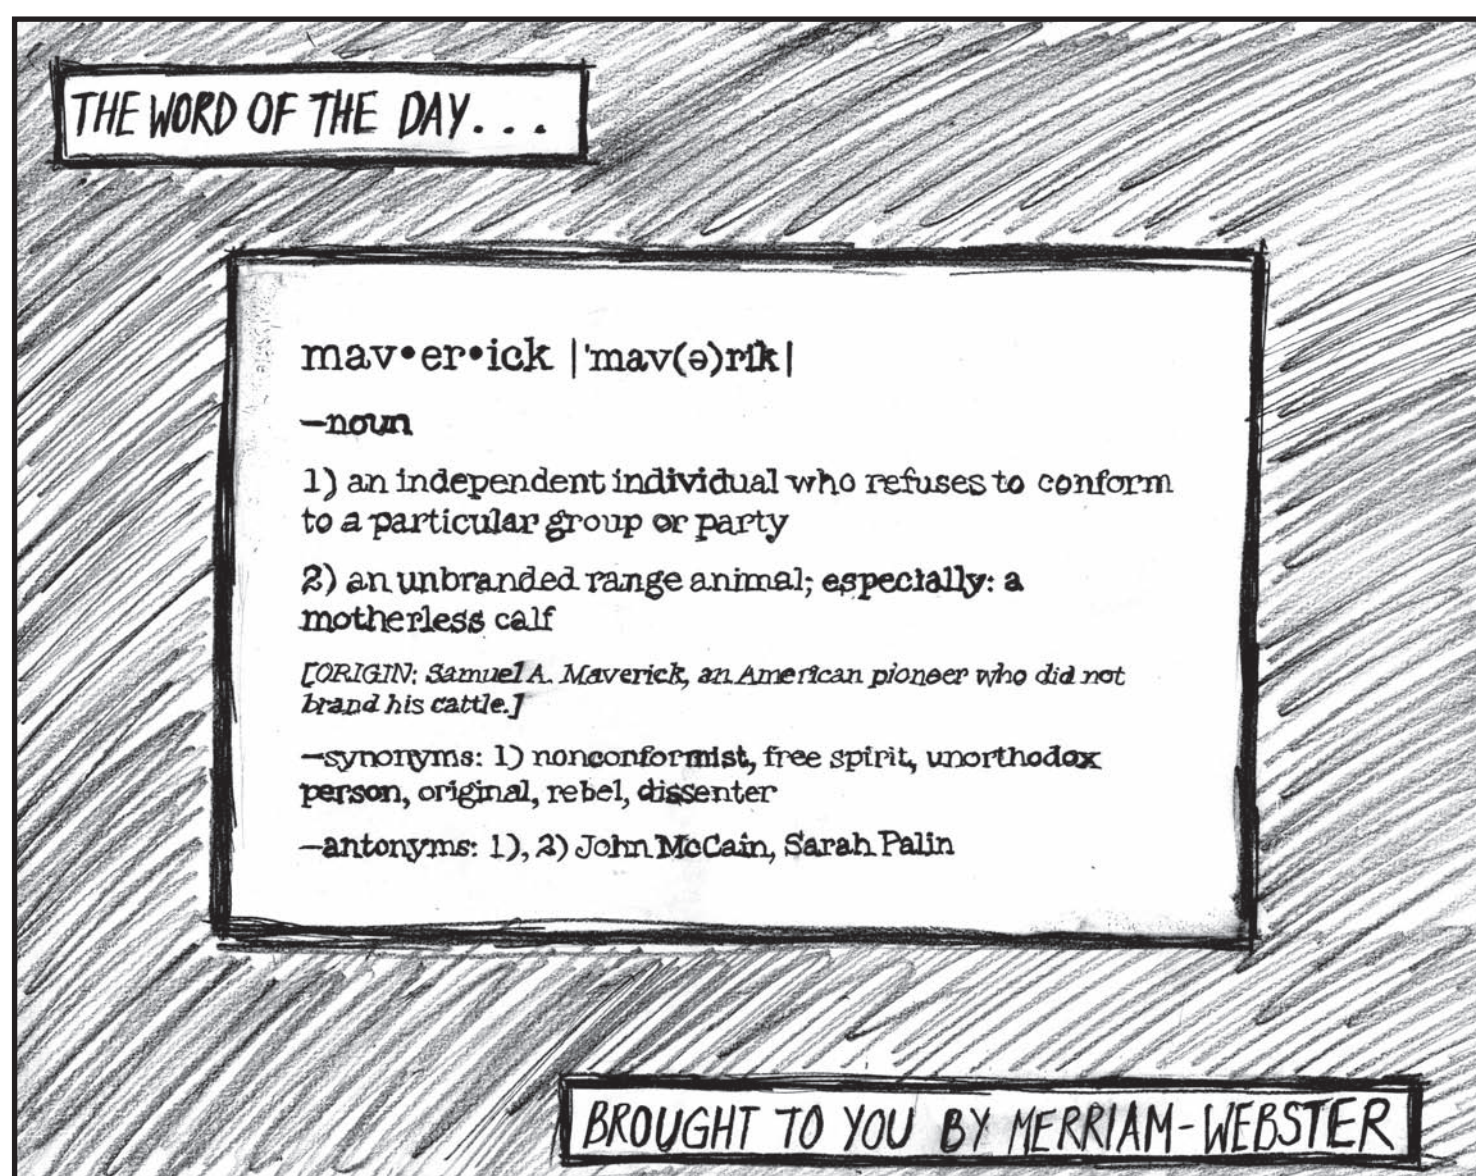 THE WORD OF THE DAY...
mav•er•ick |'mav(ə)rik|
—noun
1) an independent individual who refuses to conform
to a particular group or party
2) an unbranded range animal; especially: a
motherless calf
[ORIGIN: Samuel A. Maverick, an American pioneer who did not
brand his cattle.]
—synonyms: 1) nonconformist, free spirit, unorthodox
person, original, rebel, dissenter
—antonyms: 1), 2) John McCain, Sarah Palin
BROUGHT TO YOU BY MERRIAM-WEBSTER